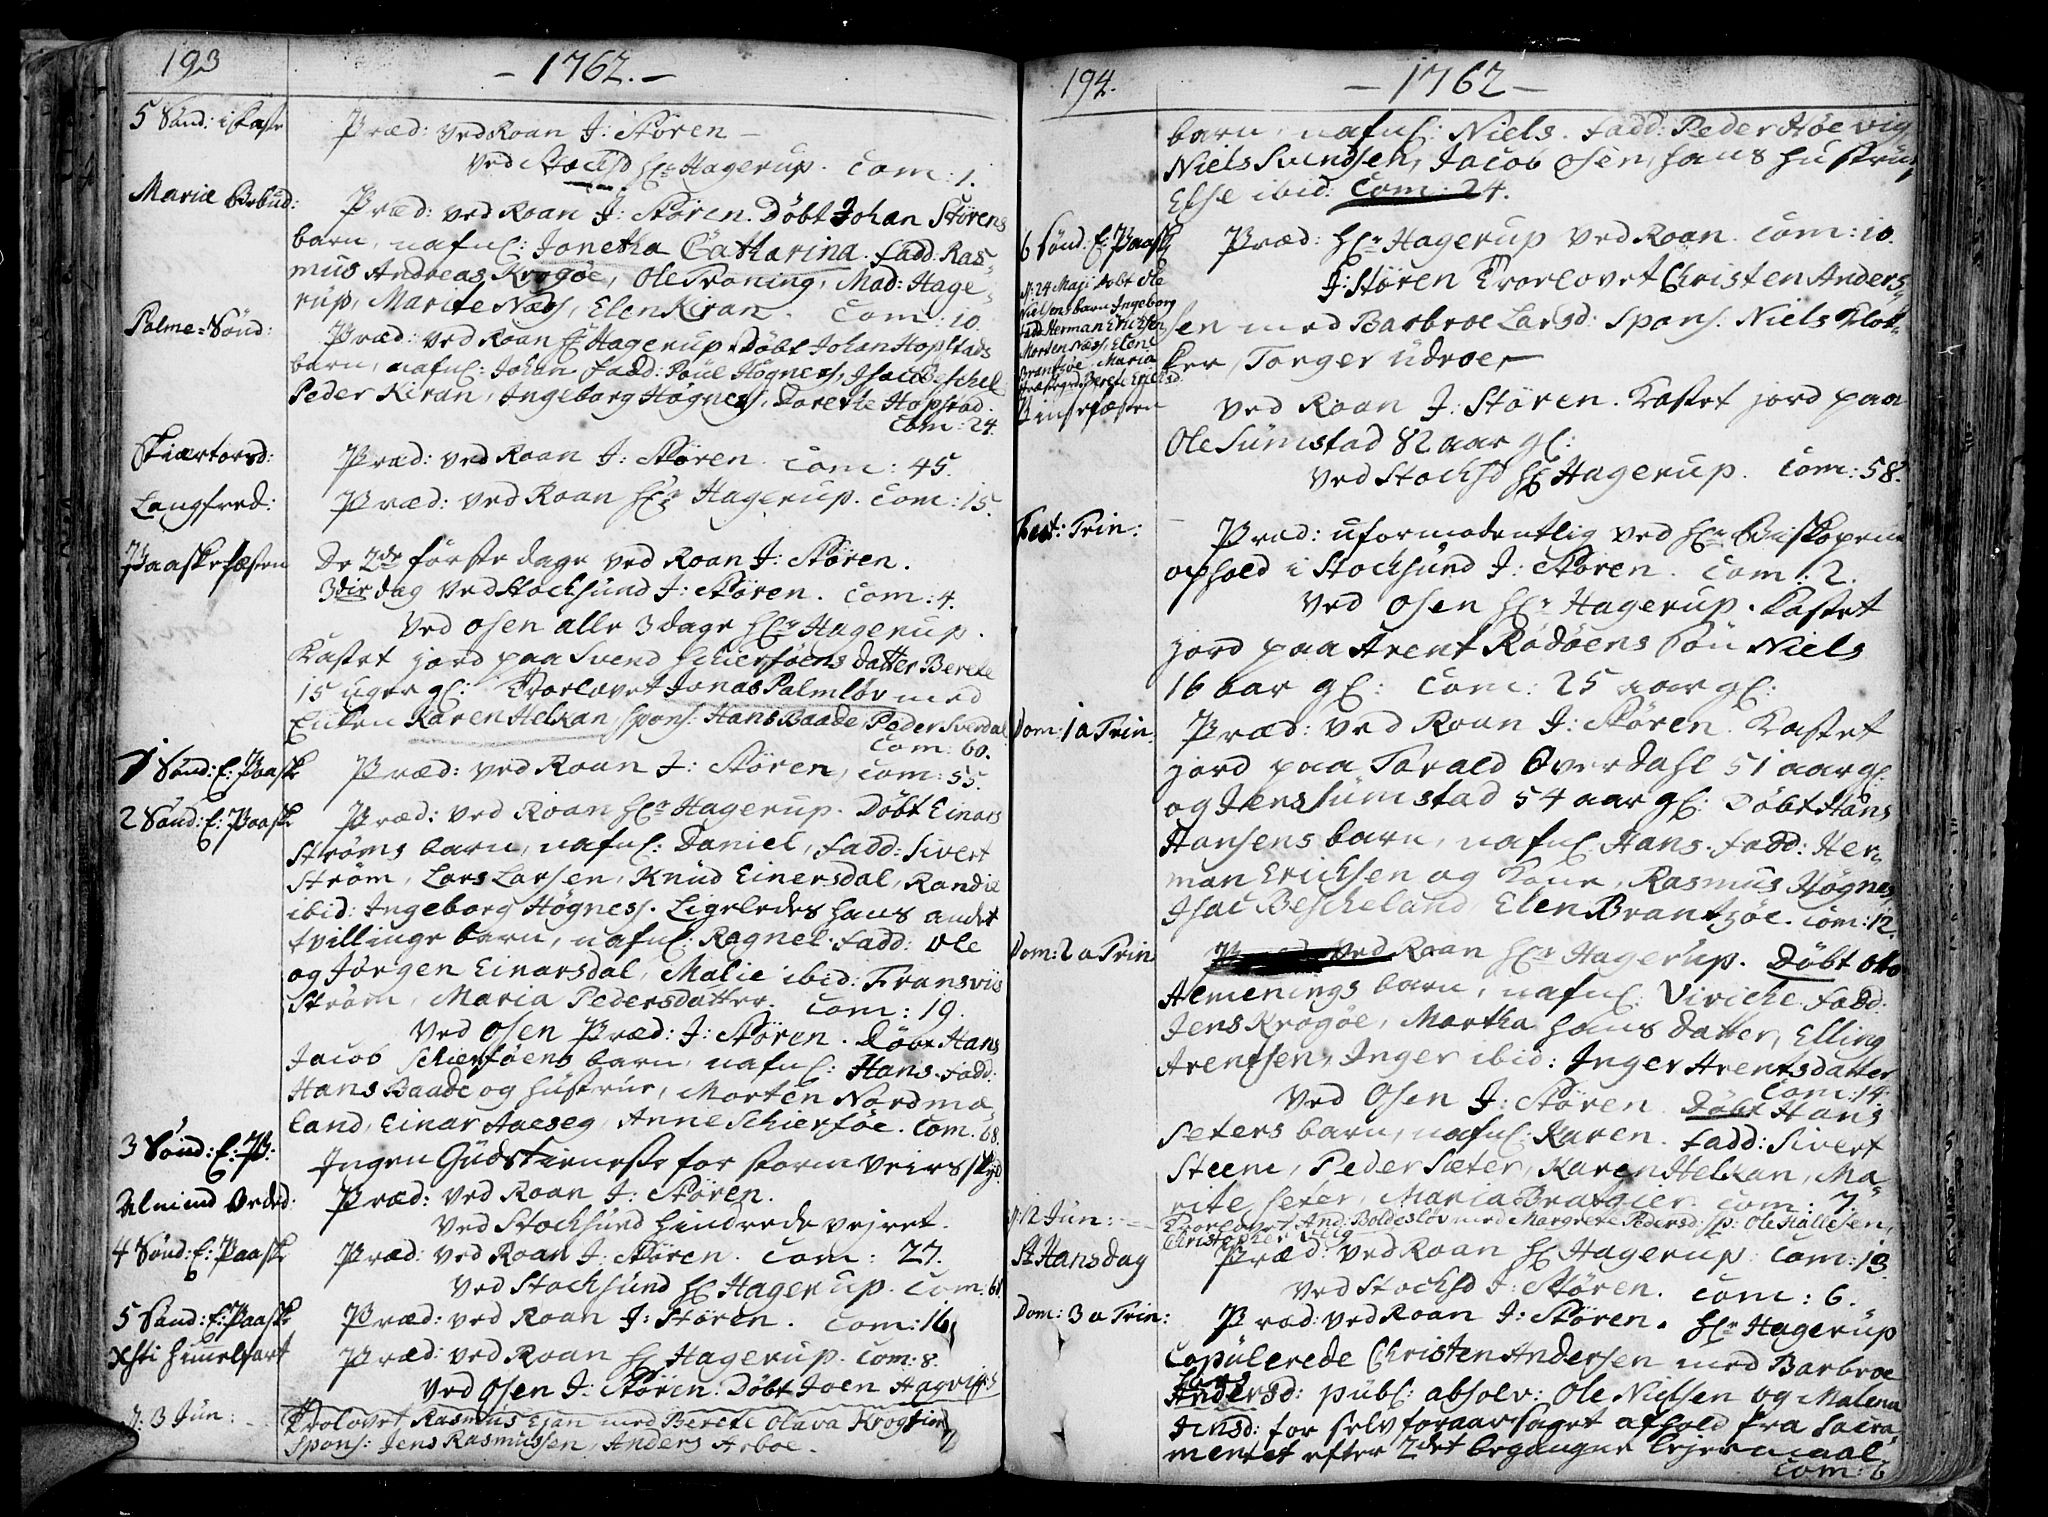 193
- 1762. -
5 Sønd: i Faste
Præd: ved Roan J: Støren -
ved Stochsd Hr: Hagerup. Com: 1.
Mariæ Bebud:
Præd: ved Roan J: Støren. Døbt Johan Størens
barn, nafnl: Jonetha Catharina. Fadd: Ras-
mus Andreas Krogøe, Ole Troning, Mad: Hage-
rup, Marite Næss, Elen Kiran. Com: 10.
Palme-Sønd:
Præd: ved Roan Hr Hagerup. Døbt Johan Hopstads
barn, nafnl: Johan Fadd: Poul Høgness, Isac Beschel
Peder Kiran, Ingeborg Høgness, Dorette Hopstad.
Com: 24.
Skiærtorsd:
Præd: ved Roan J: Støren. Com: 45.
Langfred:
Præd: ved Roan Hr: Hagerup. Com: 15.
Paaskefæsten
De 2de første dage ved Roan J: Støren.
3die dag ved Stochsund J: Støren. Com: 4.
Ved Osen alle 3 dage Hr: Hagerup.
Kastet jord paa Svend Schierføens datter Berete
15 uger gl: Trorlovet Jonas Palmløv med
Enken Karen Helkan, spons: Hans Baade, Peder Sverdal
Com: 60.
1 Sønd: E: Paaske
Præd: ved Roan J: Støren, Com: 55.
2 Sønd: E: Paaske
Præd: ved Roan Hr: Hagerup. Døbt Einars
Strøms barn, nafnl: Daniel, Fadd: Sivert
Strøm, Lars Larsen, Knud Einersdal, Randie
ibid: Ingeborg Høgness. Ligeledes hans andet
tvillinge barn, nafnl: Ragnel. Fadd: Ole
og Jørgen Einarsdal, Malie ibid: Frans
Strøm, Maria Pedersdatter. Com: 19.
Ved Osen Præd: J: Støren. Døbt Hans
Jacob Schierføens barn, nafnl: Hans. Fadd:
Hans Baade og Hustrue, Morten Nordmæ-
land, Einar Aaeseg, Anne Schierføe. Com: 68.
3 Sønd: E: P:
Ingen Gudstieneste for storm veirs skyld
Almind Beded:
Præd: ved Roan J: Støren.
Ved Stochsund hindrede vejret.
4 Sønd: E: Paaske
Præd: ved Roan J: Støren. Com: 27.
ved Stochsund Hr Hagerup. Com: 61.
5 Sønd: E: Paaske
Præd: ved Roan J: Støren. Com: 16
Xsti Himelfart
Præd: ved Roan Hr Hagerup. Com: 8.
ved Osen J: Støren. Døbt Joen Hagvigs
d: 3 Jun:
Trolovet Rasmus Esan med Berete Olava Krogfien
spons: Jens Rasmussen, Anders Arboe.
194.
- 1762 -
barn, nafnl: Niels. Fadd: Peder Høevig
Niels Svendsen, Jacob Osen, hans hustrue,
Else ibid: Com: 24.
6 Sønd: E: Paask
Præd: Hr: Hagerup ved Roan. Com: 10.
J: Støren Trorlovet Christen Anders-
sen med Barbroe Larsd: Spons: Niels Klok-
ker, Torger Udroe,
d: 24 Maji døbt Ole
Nielsens barn Ingeborg
Fadd Herman Erichsen
Morten Næss, Elen
Brantzøe, Maria
Berete Ericksd.
Pintsefæsten
ved Roan J: Støren. Kastet jord paa
Ole Sumstad 82 aar gl:
ved Stochsd Hr Hagerup. Com: 58.
Fest: Trin:
Præd: uformodentlig ved Hr: Biskopens
ophold i Stochsund J: Støren. Com: 2.
Ved Osen Hr: Hagerup. Kastet
jord paa Arent Rødøens søn Niels
16 aar gl: Com: 25 aar gl:
Dom: 1 a Trin.
Præd: ved Roan J: Støren. Kastet
jord paa Torald Øverdahl 51 aar gl.
og Jens Sumstad 54 aar gl: Døbt Hans
Hansens barn, nafnl Hans. Fadd: Her-
man Erichsen og Kone, Rasmus Høgnes,
Isac Bescheland, Elen Brantzøe. Com: 12.
Dom: 2 a Trin
ved Roan Hr: Hagerup. Døbt Oto
Almenings barn, nafnl: Viriche. Fadd:
Jens Krogøe, Martha hans datter, Elling
Arentsen, Inger ibid: Inger Arentsdatter
Com: 14.
Ved Osen J: Støren. Døbt Hans
Seters barn, nafnl: Karen. Fadd: Sivert
Steene, Peder Sæter, Karen Helkan, Ma-
rite Seter, Maria Bratgier. Com: 7.
d: 12 Jun:
Trorlovet And: Boldesløv med Margrete Pedersd: Sp: Ole Hallesen,
Christopher
St Hansdag
Præd: ved Roan Hr Hagerup. Com: 13.
ved Stochsd J: Støren. Com: 6.
Dom: 3 a Trin:
Præd: ved Roan J: Støren. Hr: Hagerup
Copulerede Christen Andersen med Barbroe
Lars
Andersd: publ: absolv: Ole Nielsen og Malena
Jensd: for selvforaarsaget afhold fra Sacra-
mentet efter 2det begangne lejermaal
Com: 6